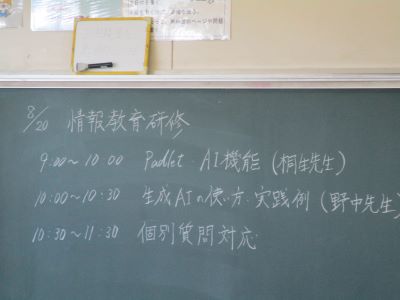 8/20 情報教育研修
9:00～10:00 Padlet AI機能 (桐生先生)
10:00～10:30 生成AIの使い方・実践例 (野中先生)
10:30～11:30 個別質問対応